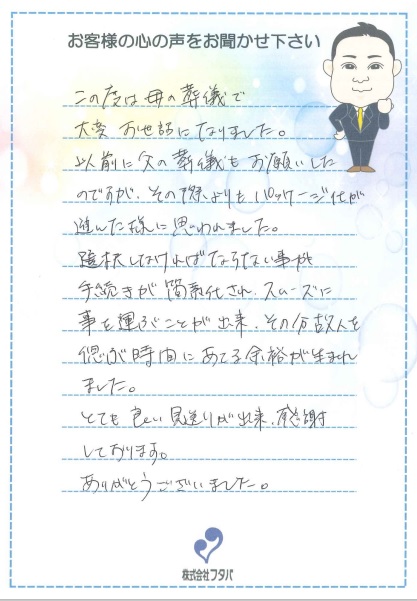 お客様の心の声をお聞かせ下さい
この度は母の葬儀で
大変お世話になりました。
以前に父の葬儀もお願いした
のですが、その際よりもパッケージ化が
進んだ様に思われました。
選択しなければならない事柄
手続きが簡素化され、スムーズに
事を運ぶことが出来、その分故人を
偲ぶ時間にあてる余裕が生まれ
ました。
とても良い見送りが出来、感謝
しております。
ありがとうございました。
株式会社フタバ